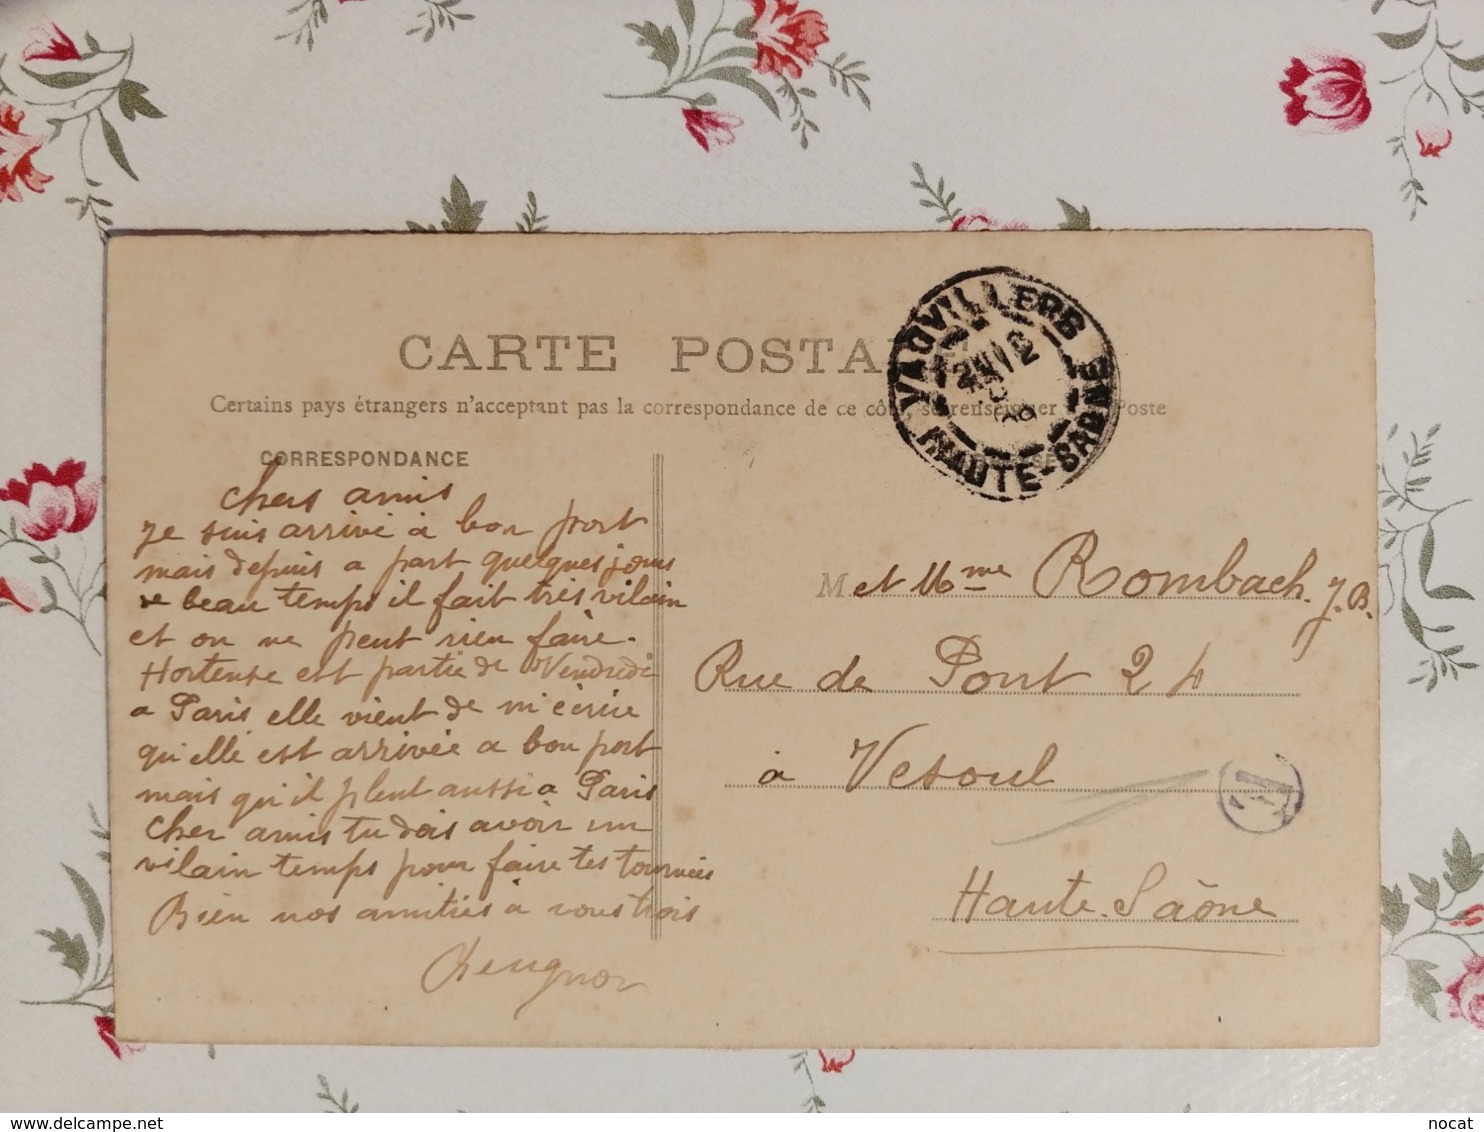 CARTE POSTALE
Certains pays étrangers n'acceptent pas la correspondance de ce côté, se renseigner Poste
CORRESPONDANCE
VAUVILLERS
HAUTE-SAÔNE
Chers amis
Je suis arrivé à bon port
mais depuis a part quelques jours
de beau temps il fait très vilain
et on ne peut rien faire.
Hortense est partie de Vendredi
a Paris elle vient de m'écrire
qu'elle est arrivée a bon port
mais qu'il pleut aussi a Paris
Cher amis tu dois avoir un
vilain temps pour faire tes tournées
Bien nos amitiés à vous trois
M et Mme Rombach. J.B.
Rue de Pont 24
à Vesoul
Haute-Saône
delcampe.net
nocat